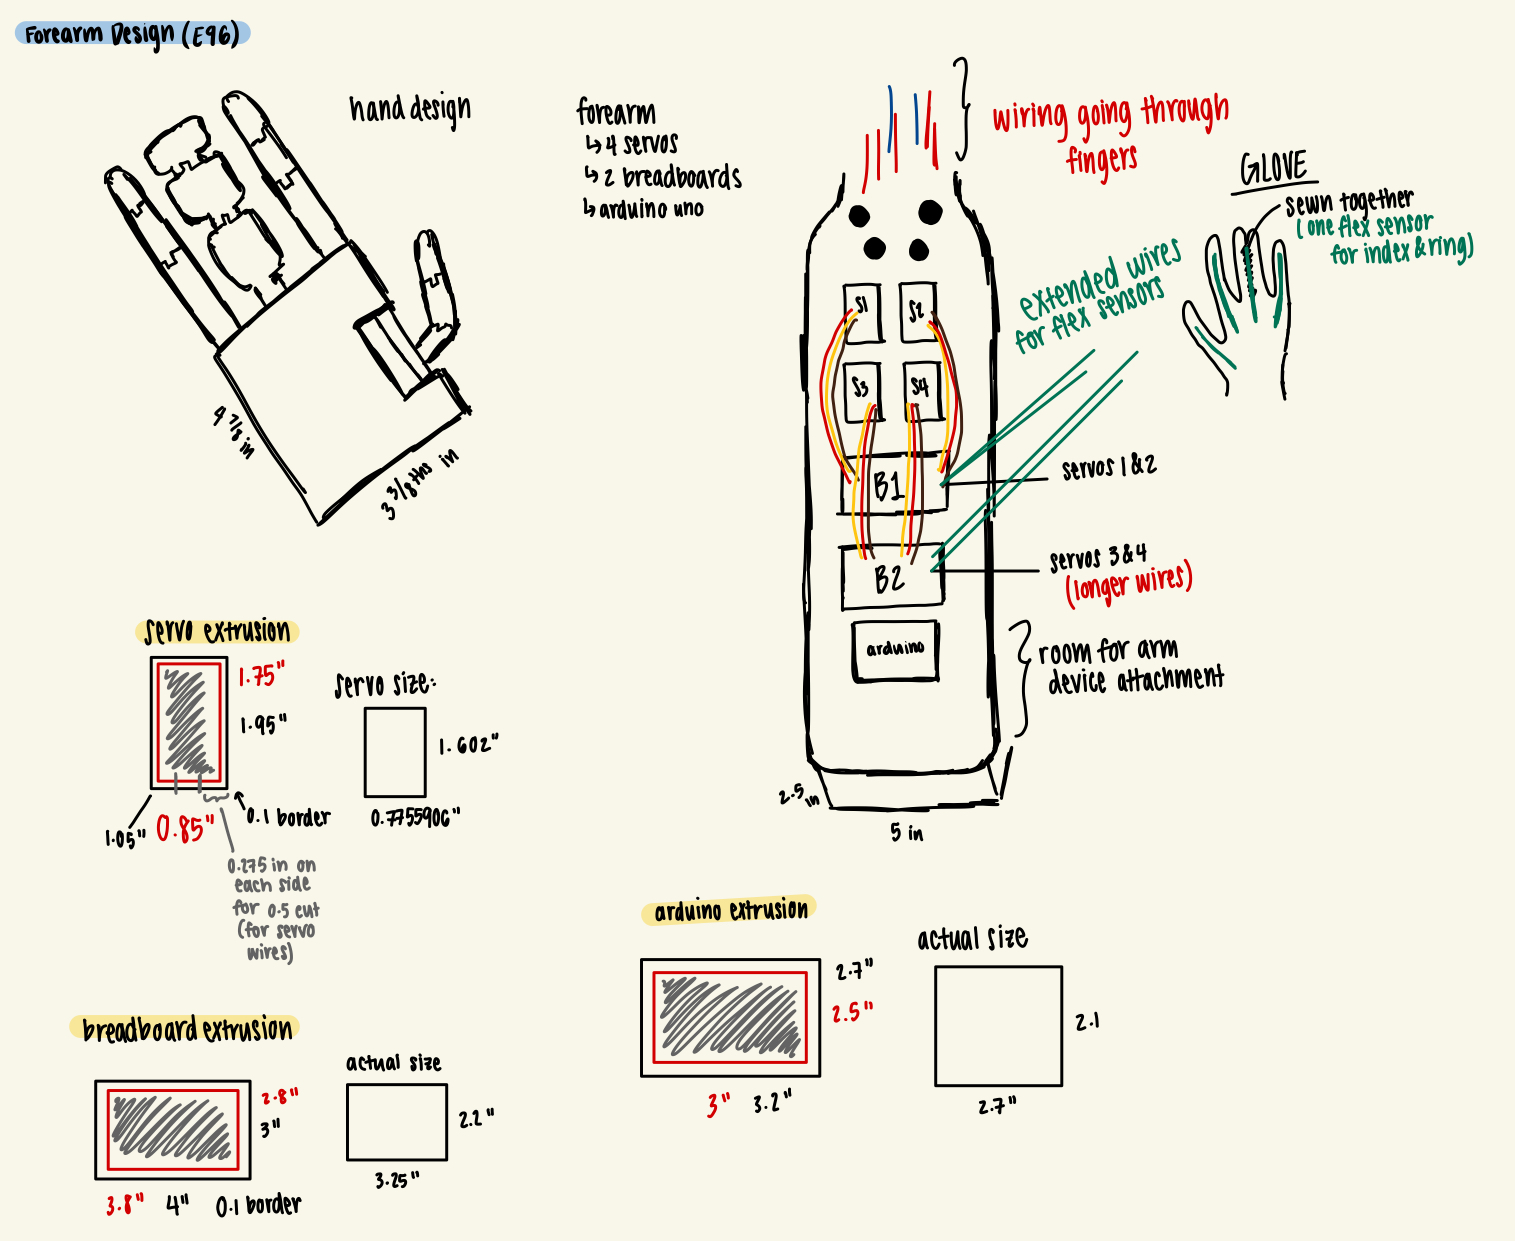 Forearm Design (E96)
hand design
4 7/8 in
3 3/8ths in
forearm
↳ 4 servos
↳ 2 breadboards
↳ arduino uno
wiring going through
fingers
GLOVE
sewn together
(one flex sensor
for index & ring)
extended wires
for flex sensors
S1
S2
S3
S4
B1
servos 1 & 2
B2
servos 3 & 4
(longer wires)
arduino
room for arm
device attachment
2.5 in
5 in
servo extrusion
1.75"
1.95"
1.05"
0.85"
0.1 border
0.275 in on
each side
for 0.5 cut
(for servo
wires)
servo size:
1.602"
0.7755906"
arduino extrusion
2.7"
2.5"
3" 3.2"
actual size
2.1
2.7"
breadboard extrusion
2.8"
3"
3.8" 4" 0.1 border
actual size
2.2"
3.25"